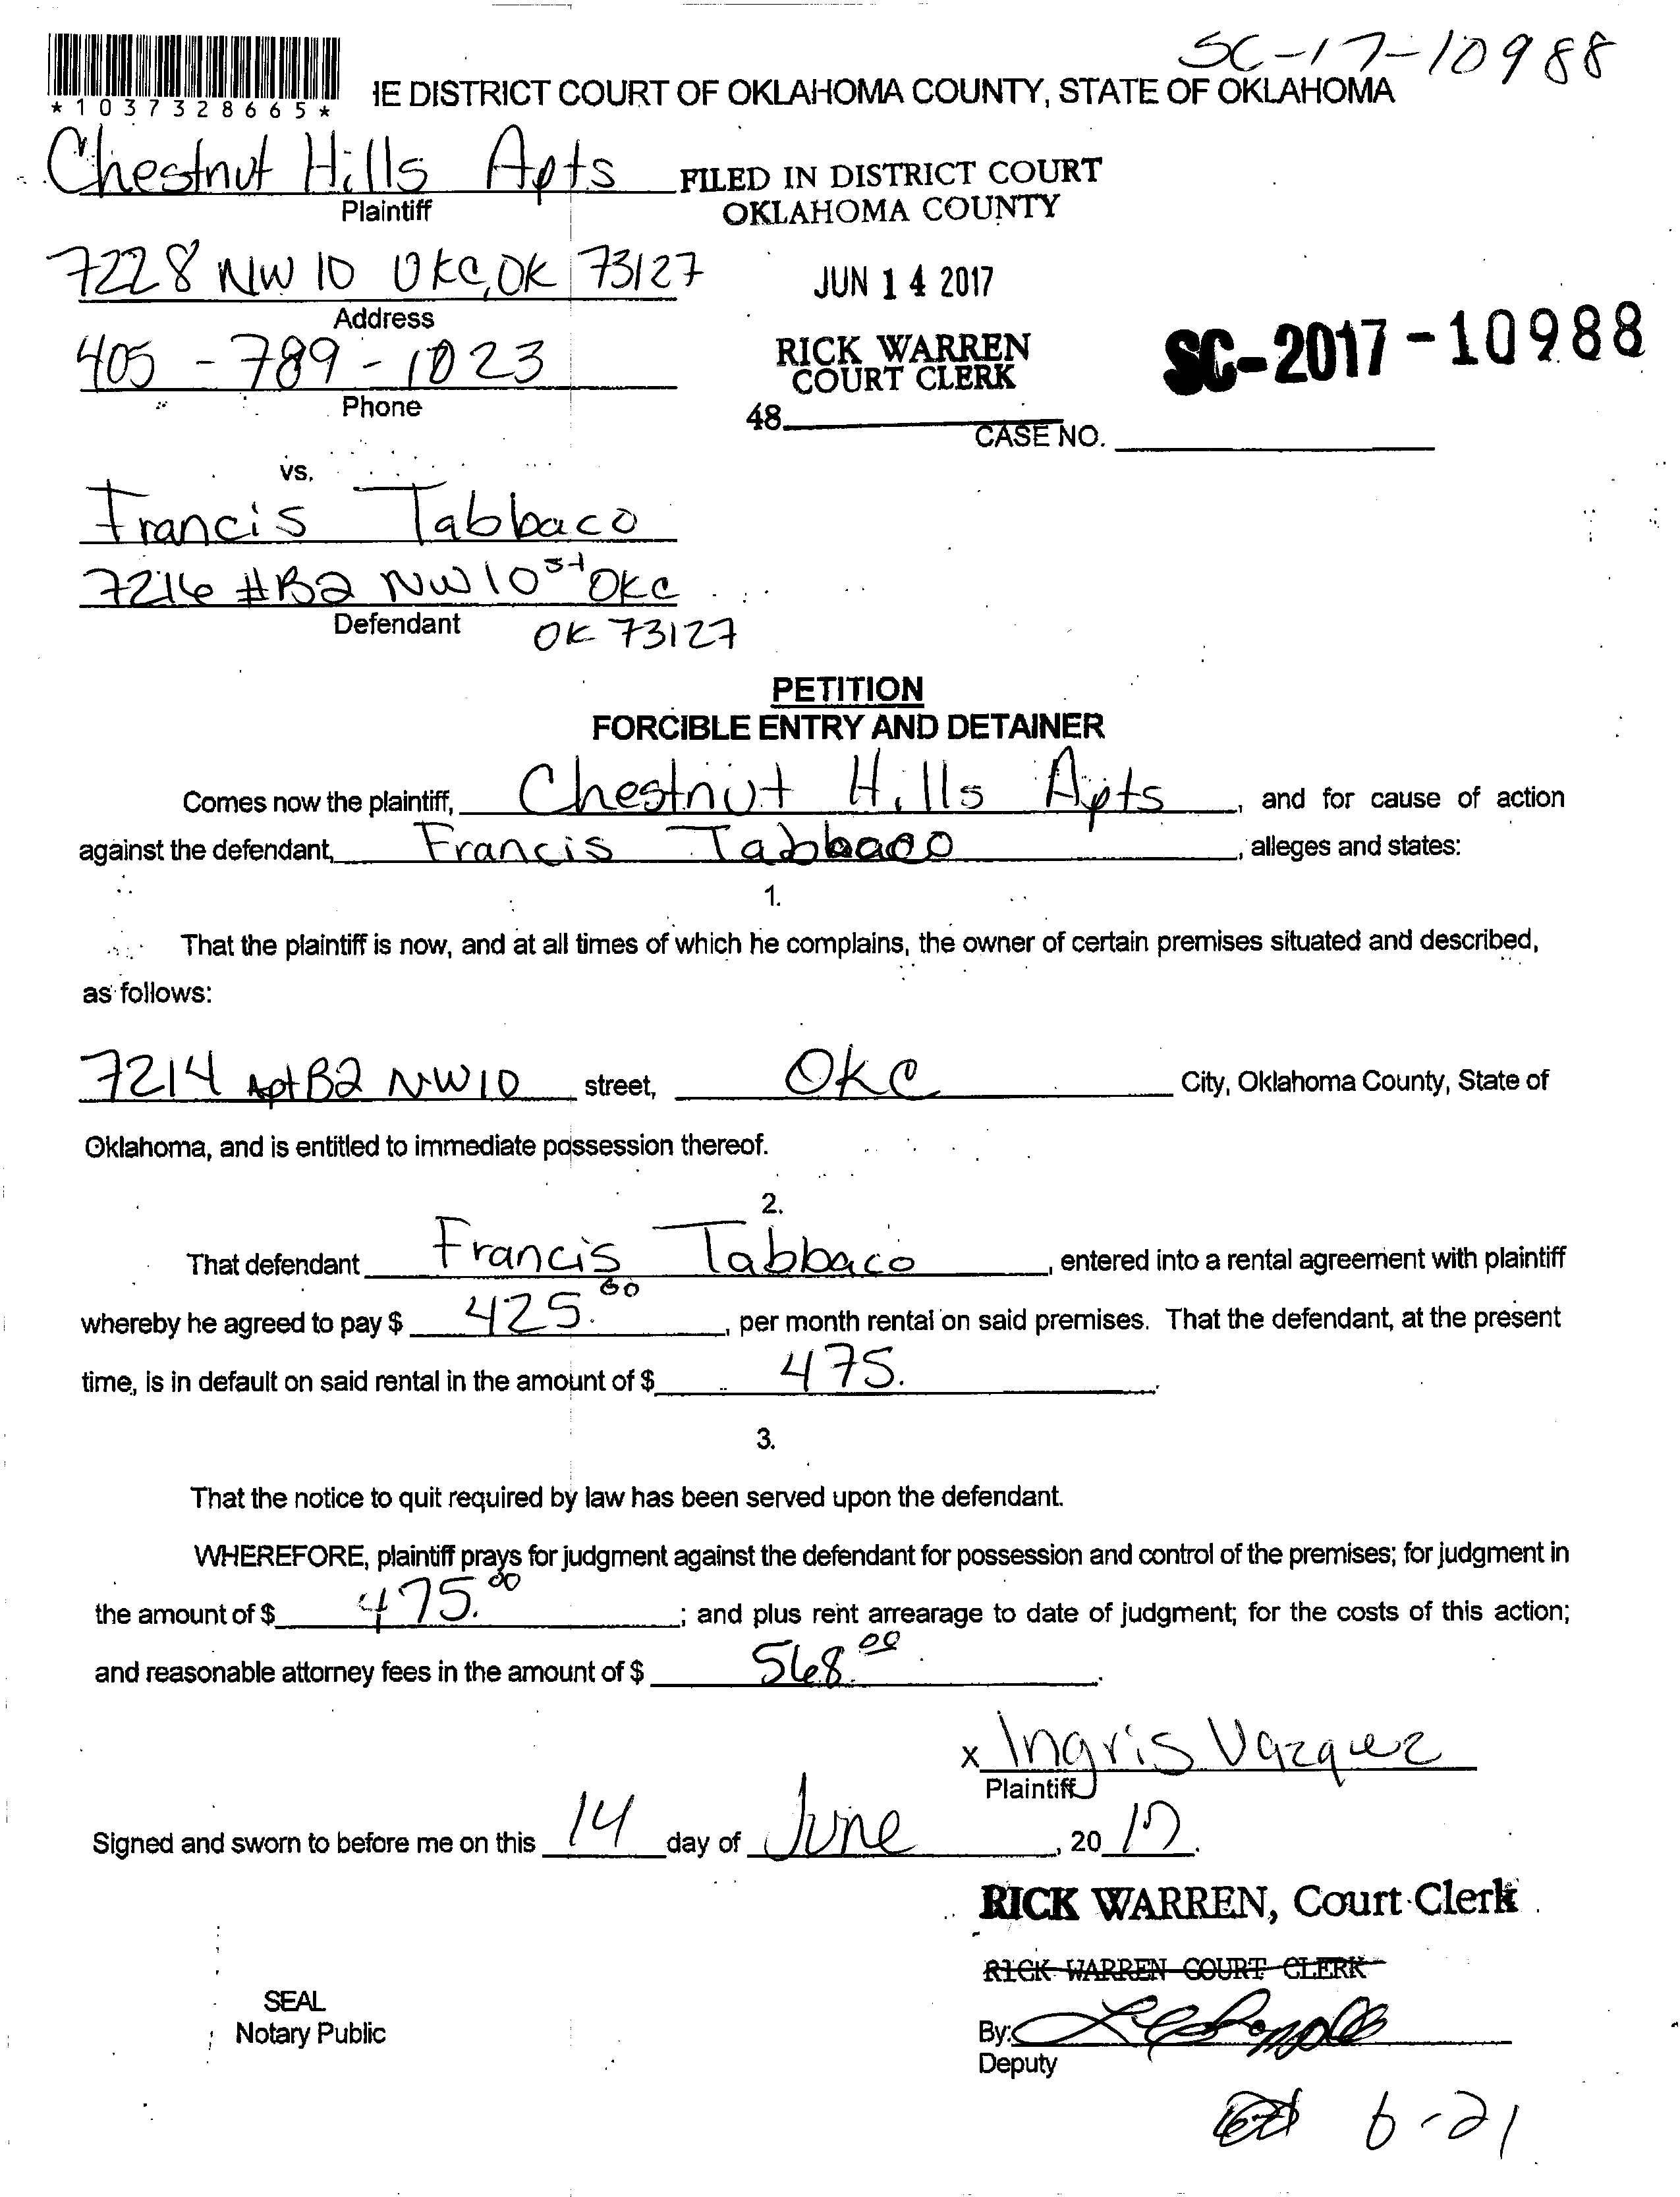 SC-17-10988
*1037328665*
IE DISTRICT COURT OF OKLAHOMA COUNTY, STATE OF OKLAHOMA
Chestnut Hills Apts
Plaintiff
FILED IN DISTRICT COURT
OKLAHOMA COUNTY
7228 NW 10 OKC, OK 73127
Address
JUN 14 2017
405-789-1023
Phone
RICK WARREN
COURT CLERK
SC-2017-10988
48
CASE NO.
vs.
Francis Tabbaco
7216 #B2 NW 10 st OKC
Defendant
OK 73127
PETITION
FORCIBLE ENTRY AND DETAINER
Comes now the plaintiff, Chestnut Hills Apts, and for cause of action
against the defendant, Francis Tabbaco, alleges and states:
1.
That the plaintiff is now, and at all times of which he complains, the owner of certain premises situated and described,
as follows:
7214 Apt B2 NW 10 street, OKC City, Oklahoma County, State of
Oklahoma, and is entitled to immediate possession thereof.
2.
That defendant Francis Tabbaco, entered into a rental agreement with plaintiff
whereby he agreed to pay $ 425.00, per month rental on said premises. That the defendant, at the present
time, is in default on said rental in the amount of $ 475.
3.
That the notice to quit required by law has been served upon the defendant.
WHEREFORE, plaintiff prays for judgment against the defendant for possession and control of the premises; for judgment in
the amount of $ 475.00; and plus rent arrearage to date of judgment; for the costs of this action;
and reasonable attorney fees in the amount of $ 568.00.
x Ingris Vazquez
Plaintiff
Signed and sworn to before me on this 14 day of June, 2017.
RICK WARREN, Court Clerk
RICK WARREN COURT CLERK
SEAL
Notary Public
By:
Deputy
6-21